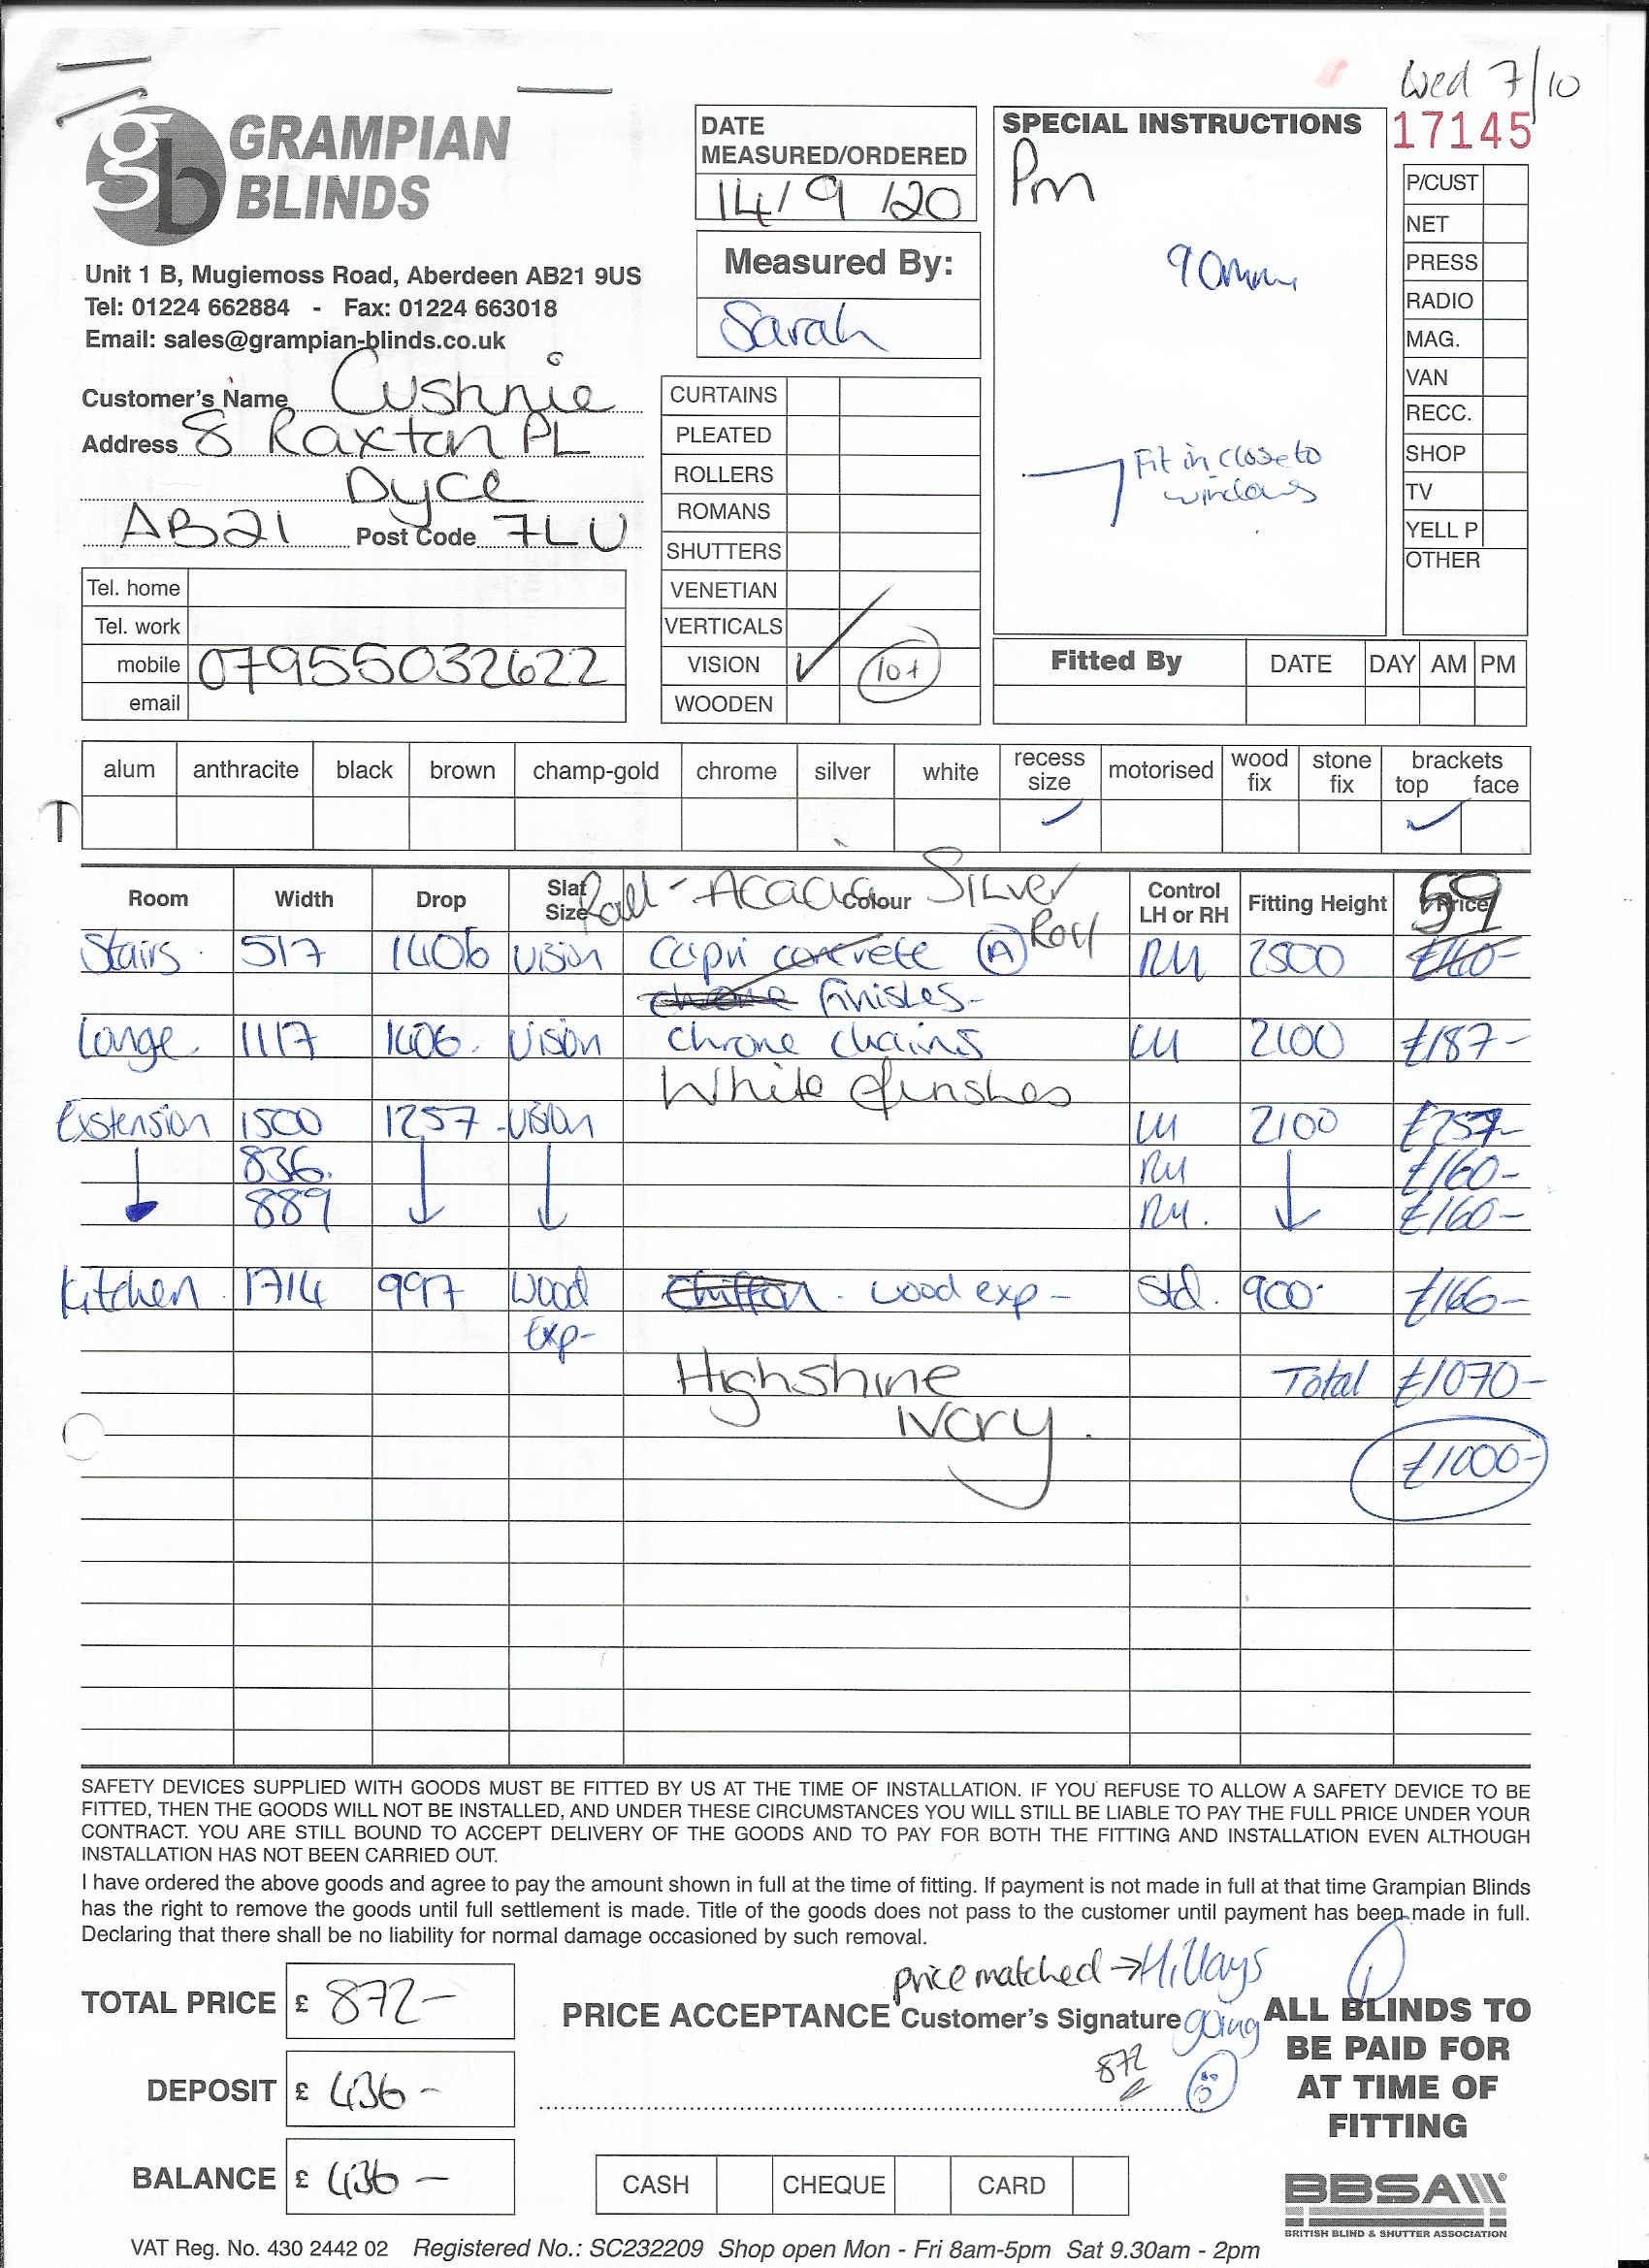 Wed 7/10
GRAMPIAN
BLINDS
gb
Unit 1 B, Mugiemoss Road, Aberdeen AB21 9US
Tel: 01224 662884 - Fax: 01224 663018
Email: sales@grampian-blinds.co.uk
Customer's Name Cushnie
Address 8 Raxton PL
Dyce
AB21 Post Code 7LU
Tel. home
Tel. work
mobile 07955032622
email
DATE
MEASURED/ORDERED
14/9/20
Measured By:
Sarah
CURTAINS
PLEATED
ROLLERS
ROMANS
SHUTTERS
VENETIAN
VERTICALS
VISION ✓ 10+
WOODEN
SPECIAL INSTRUCTIONS
Pm
90mm
Fit in close to
windows
17145
P/CUST
NET
PRESS
RADIO
MAG.
VAN
RECC.
SHOP
TV
YELL P
OTHER
Fitted By DATE DAY AM PM
alum anthracite black brown champ-gold chrome silver white recess size motorised wood fix stone fix brackets top face
T ✓ ✓
Room Width Drop Slat Size Colour Control LH or RH Fitting Height Price
Roll - Acacia Silver 59
Stairs 517 1406 vision Capri concrete A Roll RH 2500 £140-
chrome finishes-
Lounge 1117 1406 vision chrome chains LH 2100 £187-
White finshes
Extension 1500 1257 - vision LH 2100 £257-
836 RH £160-
889 RH £160-
Kitchen 1714 997 Wood Chiffon. wood exp - Std. 900 £166-
Exp-
Highshine Total £1070-
Ivory.
£1000-
SAFETY DEVICES SUPPLIED WITH GOODS MUST BE FITTED BY US AT THE TIME OF INSTALLATION. IF YOU REFUSE TO ALLOW A SAFETY DEVICE TO BE
FITTED, THEN THE GOODS WILL NOT BE INSTALLED, AND UNDER THESE CIRCUMSTANCES YOU WILL STILL BE LIABLE TO PAY THE FULL PRICE UNDER YOUR
CONTRACT. YOU ARE STILL BOUND TO ACCEPT DELIVERY OF THE GOODS AND TO PAY FOR BOTH THE FITTING AND INSTALLATION EVEN ALTHOUGH
INSTALLATION HAS NOT BEEN CARRIED OUT.
I have ordered the above goods and agree to pay the amount shown in full at the time of fitting. If payment is not made in full at that time Grampian Blinds
has the right to remove the goods until full settlement is made. Title of the goods does not pass to the customer until payment has been made in full.
Declaring that there shall be no liability for normal damage occasioned by such removal.
TOTAL PRICE £ 872-
DEPOSIT £ 436-
BALANCE £ 436-
price matched → Hillays
PRICE ACCEPTANCE Customer's Signature going
872
CASH CHEQUE CARD
ALL BLINDS TO
BE PAID FOR
AT TIME OF
FITTING
BBSA
BRITISH BLIND & SHUTTER ASSOCIATION
VAT Reg. No. 430 2442 02 Registered No.: SC232209 Shop open Mon - Fri 8am-5pm Sat 9.30am - 2pm